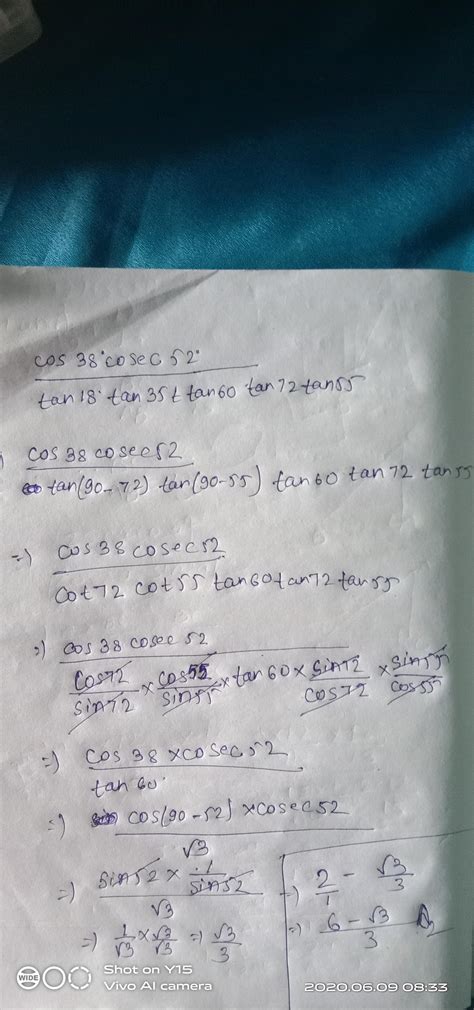 cos 38° cosec 52°
tan 18° tan 35 t tan60 tan 72 tan55
cos 38 cosec52
tan(90-72) tan(90-55) tan60 tan72 tan55
=) cos38 cosec52
cot72 cot55 tan60 tan72 tan55
=) cos38 cosec 52
cos72/sin72 × cos55/sin55 × tan60 × sin72/cos72 × sin55/cos55
=) cos 38 × cosec52
tan 60°
=) cos(90-52) × cosec52
√3
=) sin52 × 1/sin52
√3
=) 1/√3 × √3/√3 =) √3/3
=) 2/1 - √3/3
=) 6-√3/3
WIDE
Shot on Y15
Vivo AI camera
2020.06.09 08:33